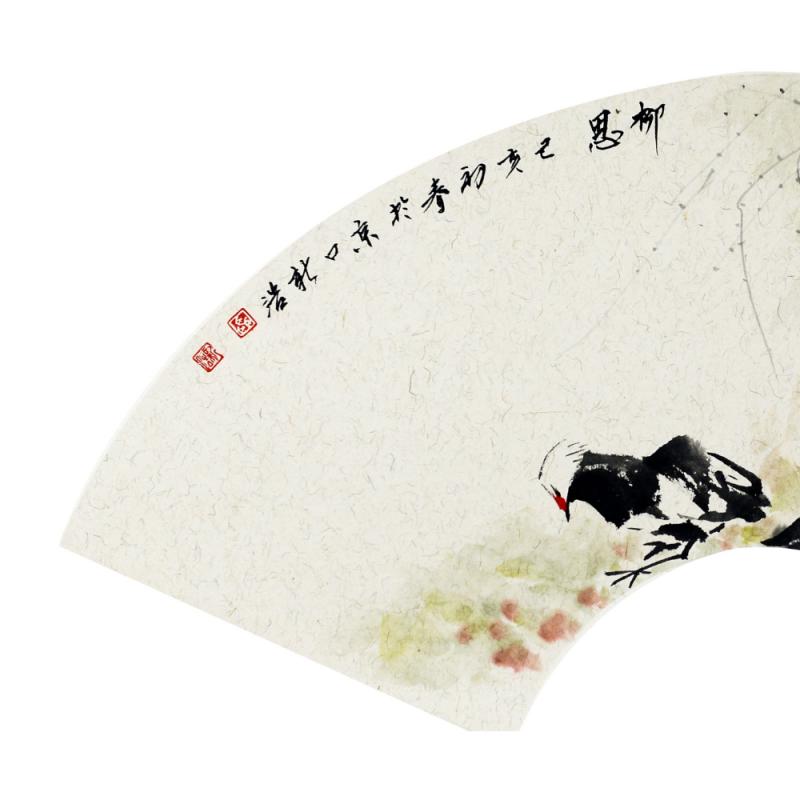 柳思
己亥初春於京口新浩